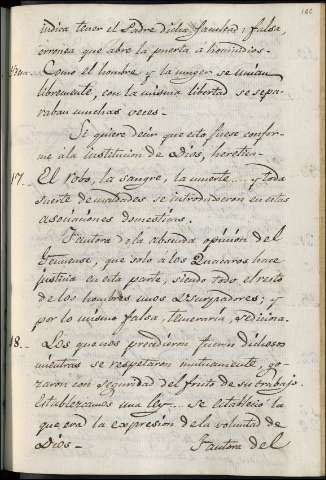 indica tener el Padre dicha facultad; falsa,
erronea que abre la puerta a homicidios.
Como el hombre y la muger se unian
libremente, con la misma libertad se sepa-
raban muchas veces-
Se quiere decir que esto fuese confor-
me á la institucion de Dios, heretica-
17. El robo, la sangre, la muerte.... y toda
suerte de maldades se introduxeron en estas
asociaciones domesticas.
Fautora de la absurda opinion del
que solo a los Quakaros hace
justicia en esta parte, siendo todo el resto
de los hombres unos Usurpadores; y
por lo mismo falsa, temeraria, sediciosa.
18. Los que nos precedieron fueron dichosos
mientras se respetaron mutuamente, go-
zaron con seguridad del fruto de su trabajo.
Establezcamos una ley.... se estableció la
que era la expresion de la voluntad de
Dios-
Fautora del